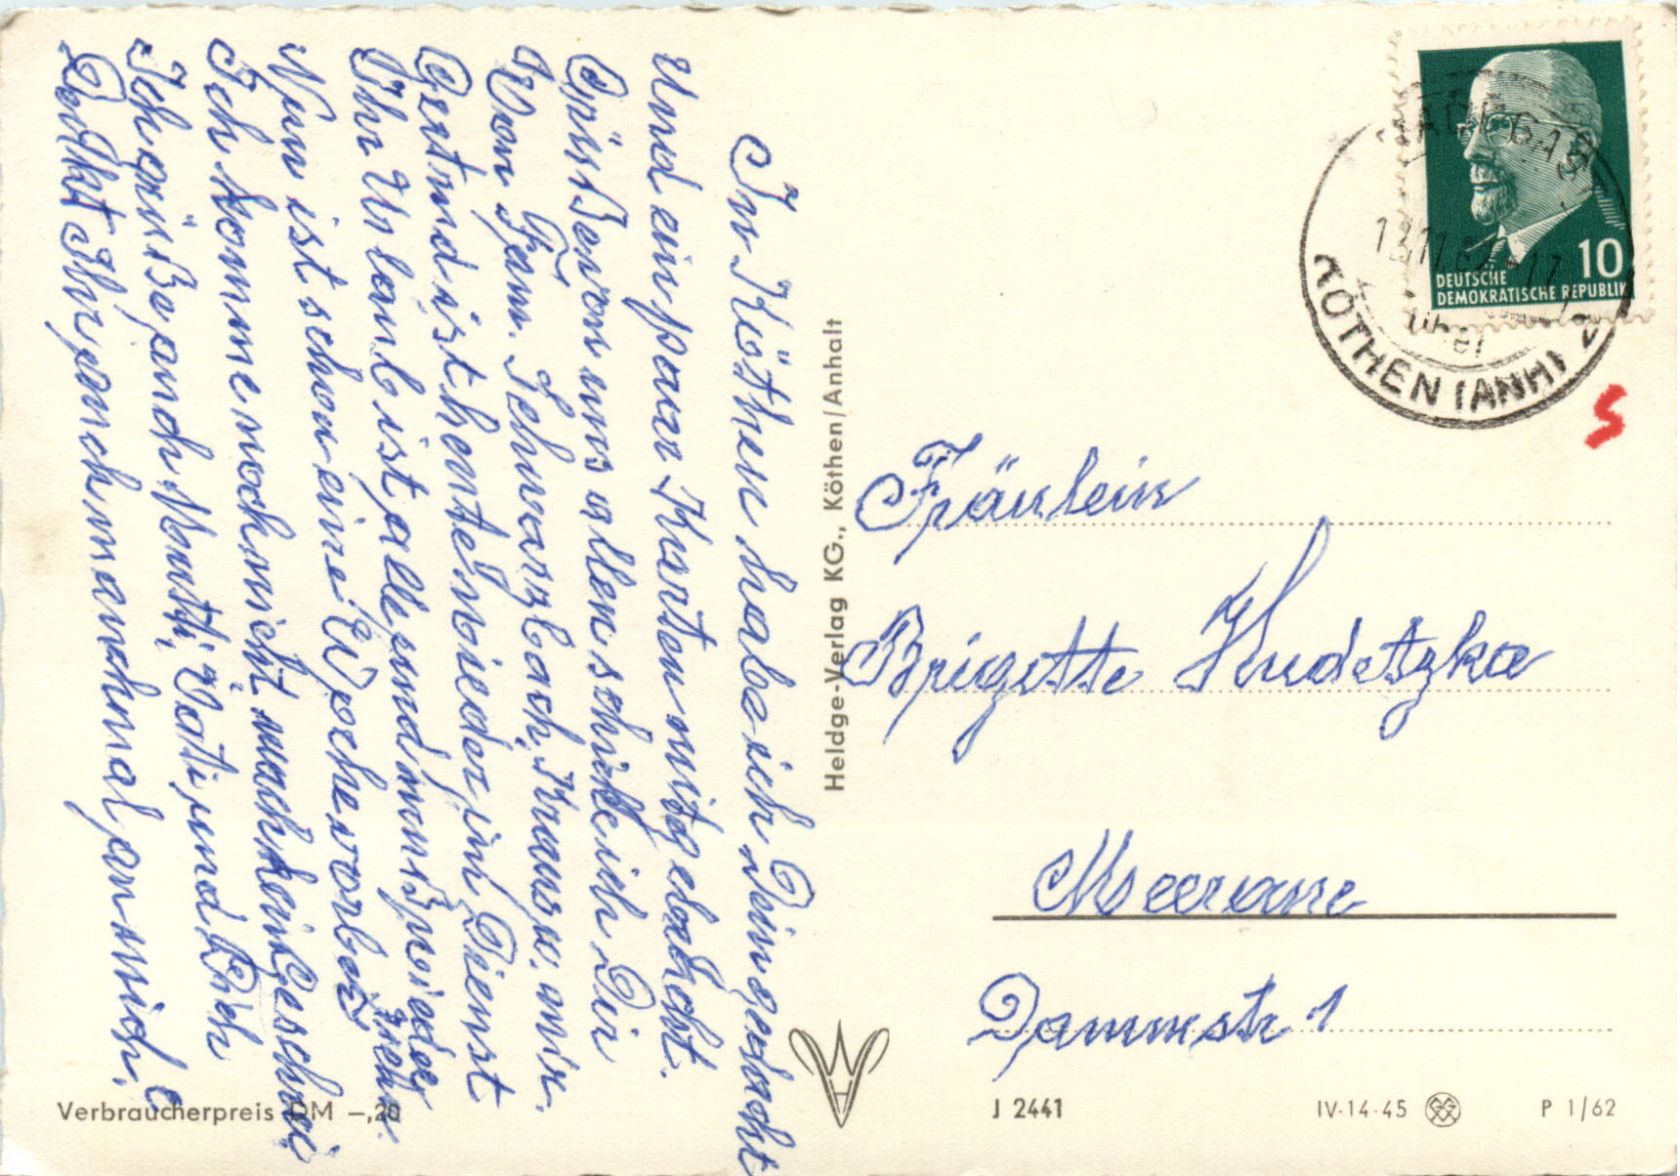 In Köthen habe ich Dein gedacht
Und ein paar Karten mitgebracht.
Grüsse von uns allen schicke ich Dir
Von Fam. Schwarzbach, Kraus u. mir.
Gertrud ist heute wieder im Dienst
Ihr Urlaub ist alle und muß wieder
ziehn.
Nun ist schon eine Woche vorbei
Ich komme noch nicht, macht kein Geschrei
Ich grüße auch Mutti, Vati und Dich
Denkt Ihr auch manchmal an mich.
Verbraucherpreis DM –,20
Heldge-Verlag KG., Köthen/Anhalt
DEUTSCHE
DEMOKRATISCHE REPUBLIK
10
KÖTHEN (ANH) 2
Fräulein
Brigitte Hudetzka
Meerane
Dammstr 1
J 2441
IV-14-45
P 1/62